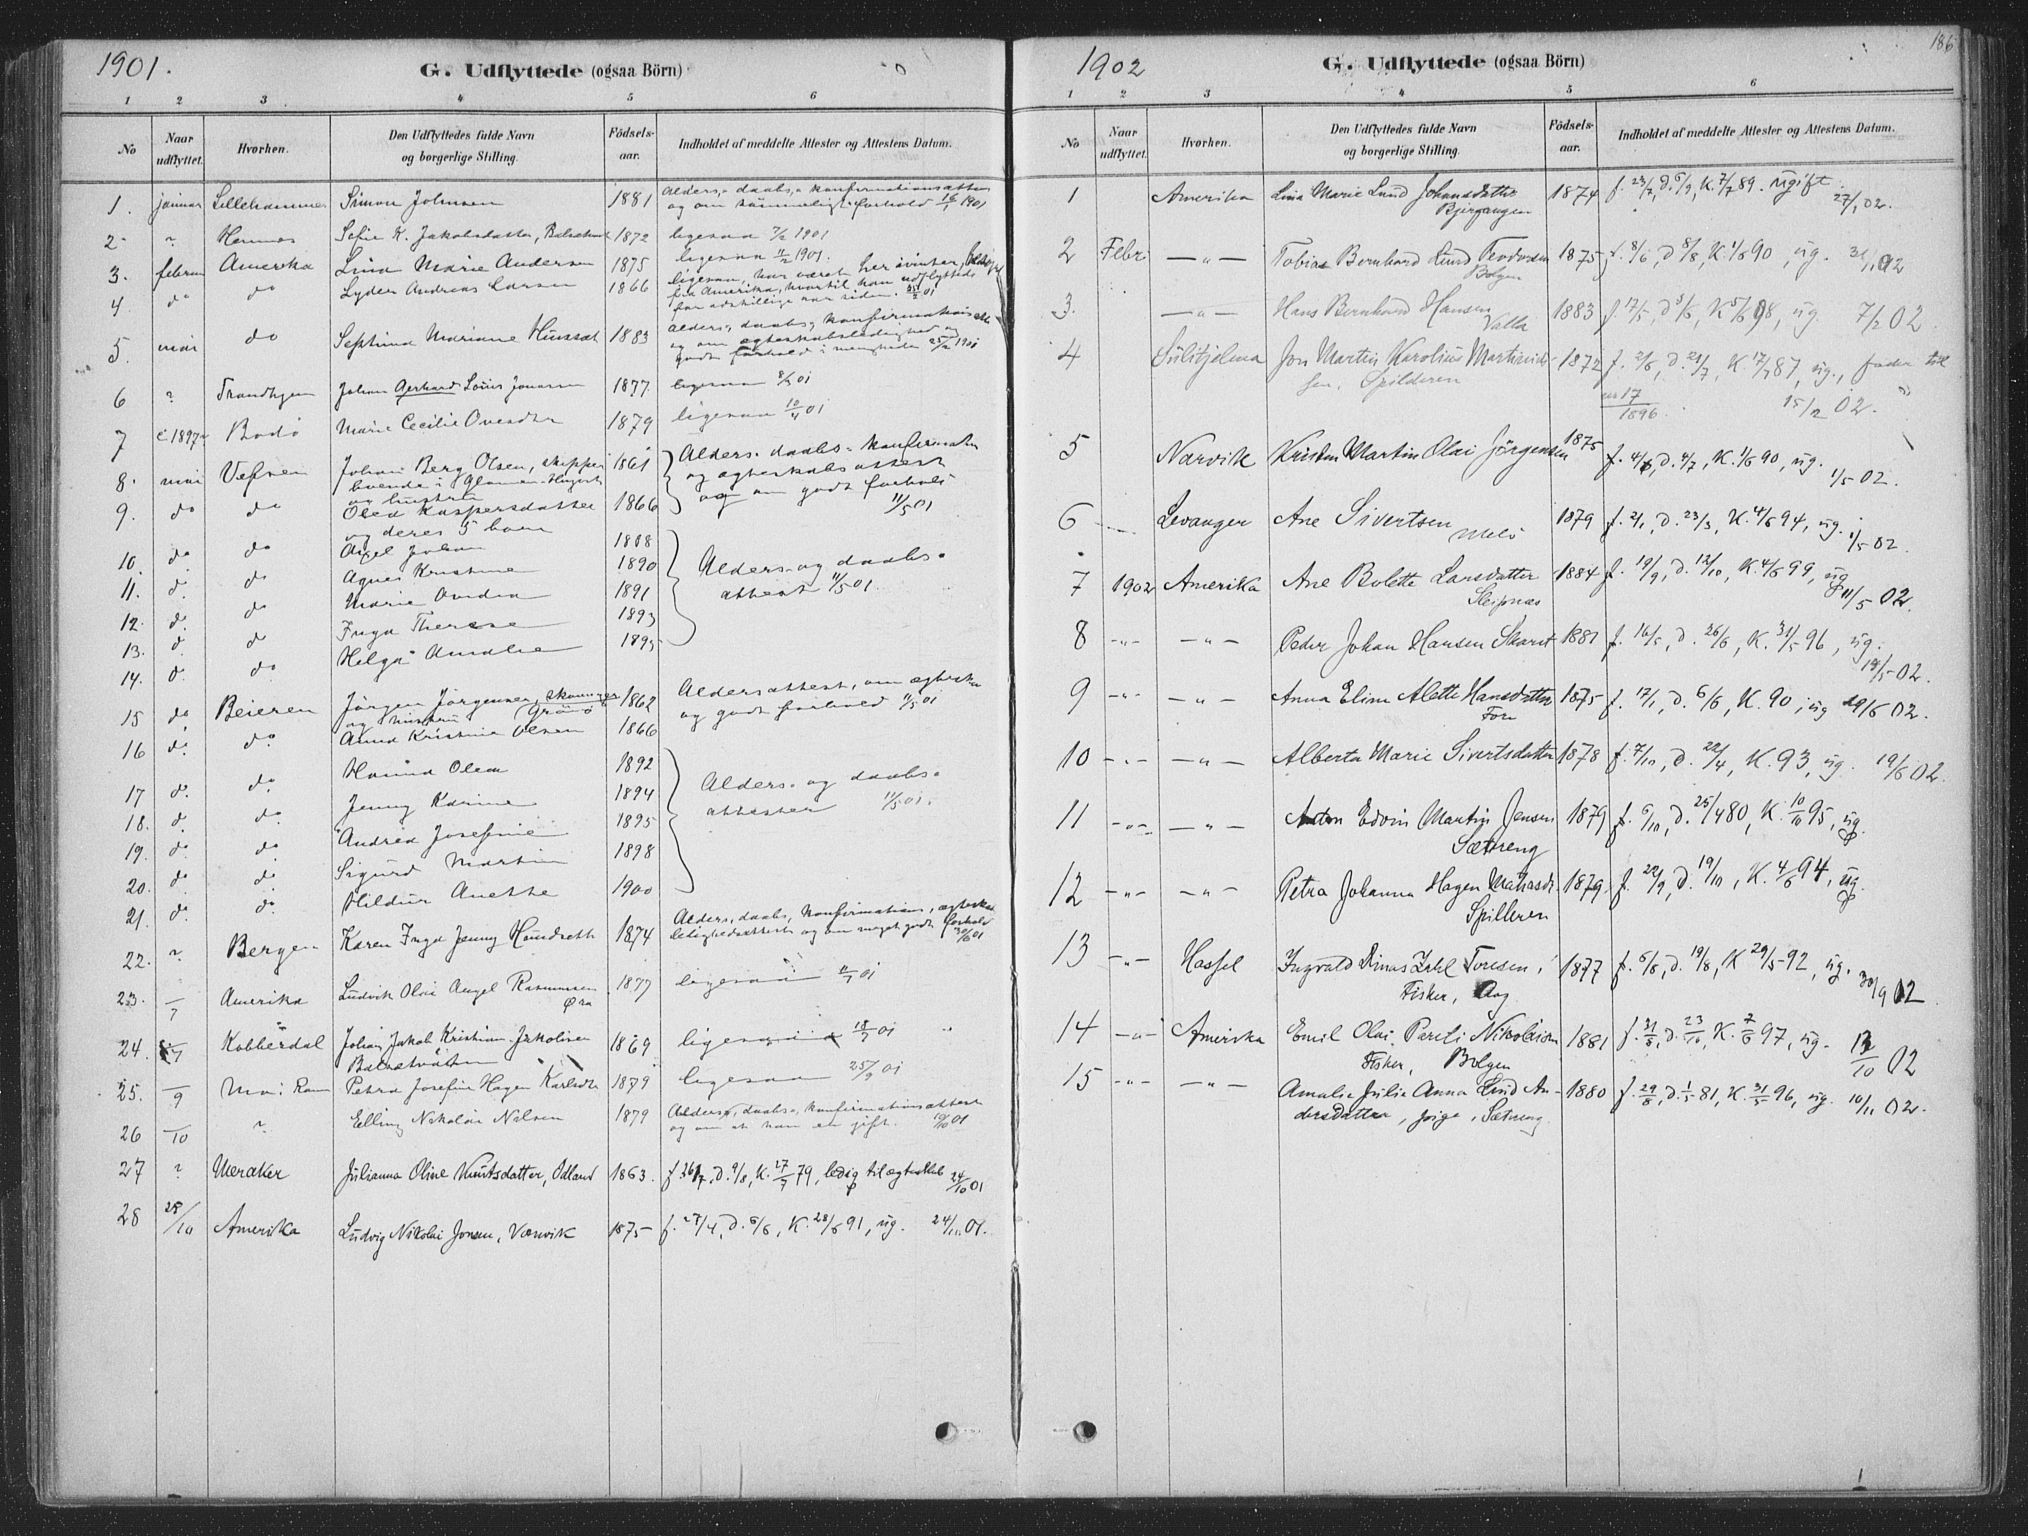 1901.
G. Udflyttede (ogsaa Börn)
1 2 3 4 5 6
No
Naar udflyttet.
Hvorhen.
Den Udflyttedes fulde Navn og borgerlige Stilling.
Födsels-aar.
Indholdet af meddelte Attester og Attestens Datum.
1. januar Lillehammer Simon Johnsen 1881 Alders-, daabs-, konfirmationsattest
og om sømmeligt forhold 16/1 1901
2 " Hemnes Sofie K. Jakobsdatter, 1872 ligesaa 7/2 1901
3. februar Amerika Lina Marie Andersen 1875 ligesaa 11/2 1901.
4 do do Lyder Andreas Larsen 1866 ligesaa, har været her ivinter,
fra Amerika, hvortil han udflyttede
for adskillige aar siden. 01
5. mai do Septima Mariane 1883 Alders-, daabs-, konfirmationsatt
og om ægteskabsledighed og
godt forhold i menigheden 25/2 1901
6 ? Trondhjem Johan Gerhard Louis Jonassen 1877 ligesaa 01
7 1897 Bodö Marie Cecilie 1879 ligesaa 10/4 01
8. mai Vefsen Johan Berg Olsen, skipper 1861 Alders- daabs- konfirmation
boende i og ægteskabsattest
og hustru og om godt forhold
9. do do Olea Kaspersdatter 1866 11/5 01
og deres 5 børn
10. do do Axel Johan 1888 Alders- og daabs-
11. d. do Agnes Kristine 1890 attest 11/5 01.
12. d. do Marie 1891
13. d. do Inga Therese 1893
14. d. do Helga Amalie 1895
15 do Beieren Jørgen Jørgensen, 1862 Aldersattest, om ægteskab
og hustru Grønø og godt forhold 11/5 01
16 do do Anna Kristine Olsen 1866
17 d. do Hanna Olea 1892 Alders- og daabs-
18. d. do Jenny Karine 1894 attester 11/5 01.
19. d. do Andrea Josefine 1895
20. d. do Sigurd Martin 1898
21. d. do Hildur Anette 1900
22. ? Bergen Karen Inga Jenny 1874 Alders, daabs, konfirmations, ægteskabs
ledighedsattest og om meget godt forhold
30/6 01
23. /7 Amerika Ludvik Olai Angel Rasmussen 1877 ligesaa 01
Øra
24. /7 Kobberdal Johan Jakob Kristian Jakobsen 1869 ligesaa 18/7 01
25. /9 Mo i Ran Petra Josefine Hagen Karlsdtr 1879 ligesaa 25/9 01
26 /10 ? Elling Nikolai Nilsen 1879 Alders-, daabs-, konfirmationsattest
og om at han er gift. 19/10 01
27 ? Meraker Julianna Oline Knutsdatter, Odland 1863. f. 26/7, D. 9/8, K. 27/7 79, ledig til ægteskab 24/10 01
28 28/10 Amerika Ludvig Nikolai Jonsen, Værnvik 1875 f. 27/4, D. 6/6, K. 28/6 91, ug. 24/10 01.
1902
186
G. Udflyttede (ogsaa Börn)
1 2 3 4 5 6
No
Naar udflyttet.
Hvorhen.
Den Udflyttedes fulde Navn og borgerlige Stilling.
Födsels-aar.
Indholdet af meddelte Attester og Attestens Datum.
1 Amerika Lina Marie Lund Johansdatter 1874 f. 23/7, D. 6/9, K. 7/7 89. ugift
Bjergangen 27/1 02.
2 Febr — " — Tobias Bernhard Lund Teodorsen 1875 f. 8/6, D 8/8, K. 1/6 90, ug. 31/1 02
Bolgen
3. — " — Hans Bernhard Hansen 1883 f 17/5, D 3/6, K 5/6 98, ug. 7/2 02.
Valla
4 Sulitjelma Jon Martin Karolius Martinus- 1872 f. 2/6, D. 21/7, K. 17/7 87, ug., fader til
sen, Spilderen nr 17/1896. 15/2 02.
5 Narvik Kristen Martin Olai Jörgensen 1875 f. 4/6, D. 4/7, K. 1/6 90, ug. 1/5 02.
6 Levanger Ane Sivertsen 1879 f. 2/1, D. 23/3, K. 4/6 94, ug. 1/5 02.
Melö
7 1902 Amerika Ane Bolette Larsdatter 1884 f. 19/9, D. 12/10, K. 4/6 99, ug
Sleipnæs 11/5 02.
8 — " — — " — Peder Johan Hansen 1881 f. 16/5, D. 26/6, K. 31/5 96, ug.
19/5 02.
9 — " — — " — Anna Eline Alette Hansdatter 1875 f. 17/1, D. 6/6, K. 90, ug 19/6 02.
Fore
10 — " — — " — Alberta Marie Sivertsdatter 1878 f. 7/10, D. 22/4, K. 93, ug. 19/6 02.
11 — " — — " — Anton Edvin Martin Jensen 1879 f. 6/10, D. 25/4 80, K. 10/10 95, ug.
Sætreng
12 — " — — " — Petra Johanna Hagen 1879 f. 22/9, D. 19/10, K. 4/6 94, ug.
Spilleren
13 — " — Hassel Ingvald Toresen, 1877 f. 6/8, D. 19/8, K 29/5 92, ug. 30/9 02
Fisker, Aag
14 — " — Amerika Emil Olai Pareli Nikolaisen 1881 f. 31/8, D. 23/10, K. 7/6 97, ug. 12/10 02
Fisker, Bolgen
15 — " — — " — Amalie Julie Anna Lund An- 1880 f. 29/8, D. 1/5 81, K. 31/5 96, ug. 10/11 02.
dersdatter, pige, Sætreng